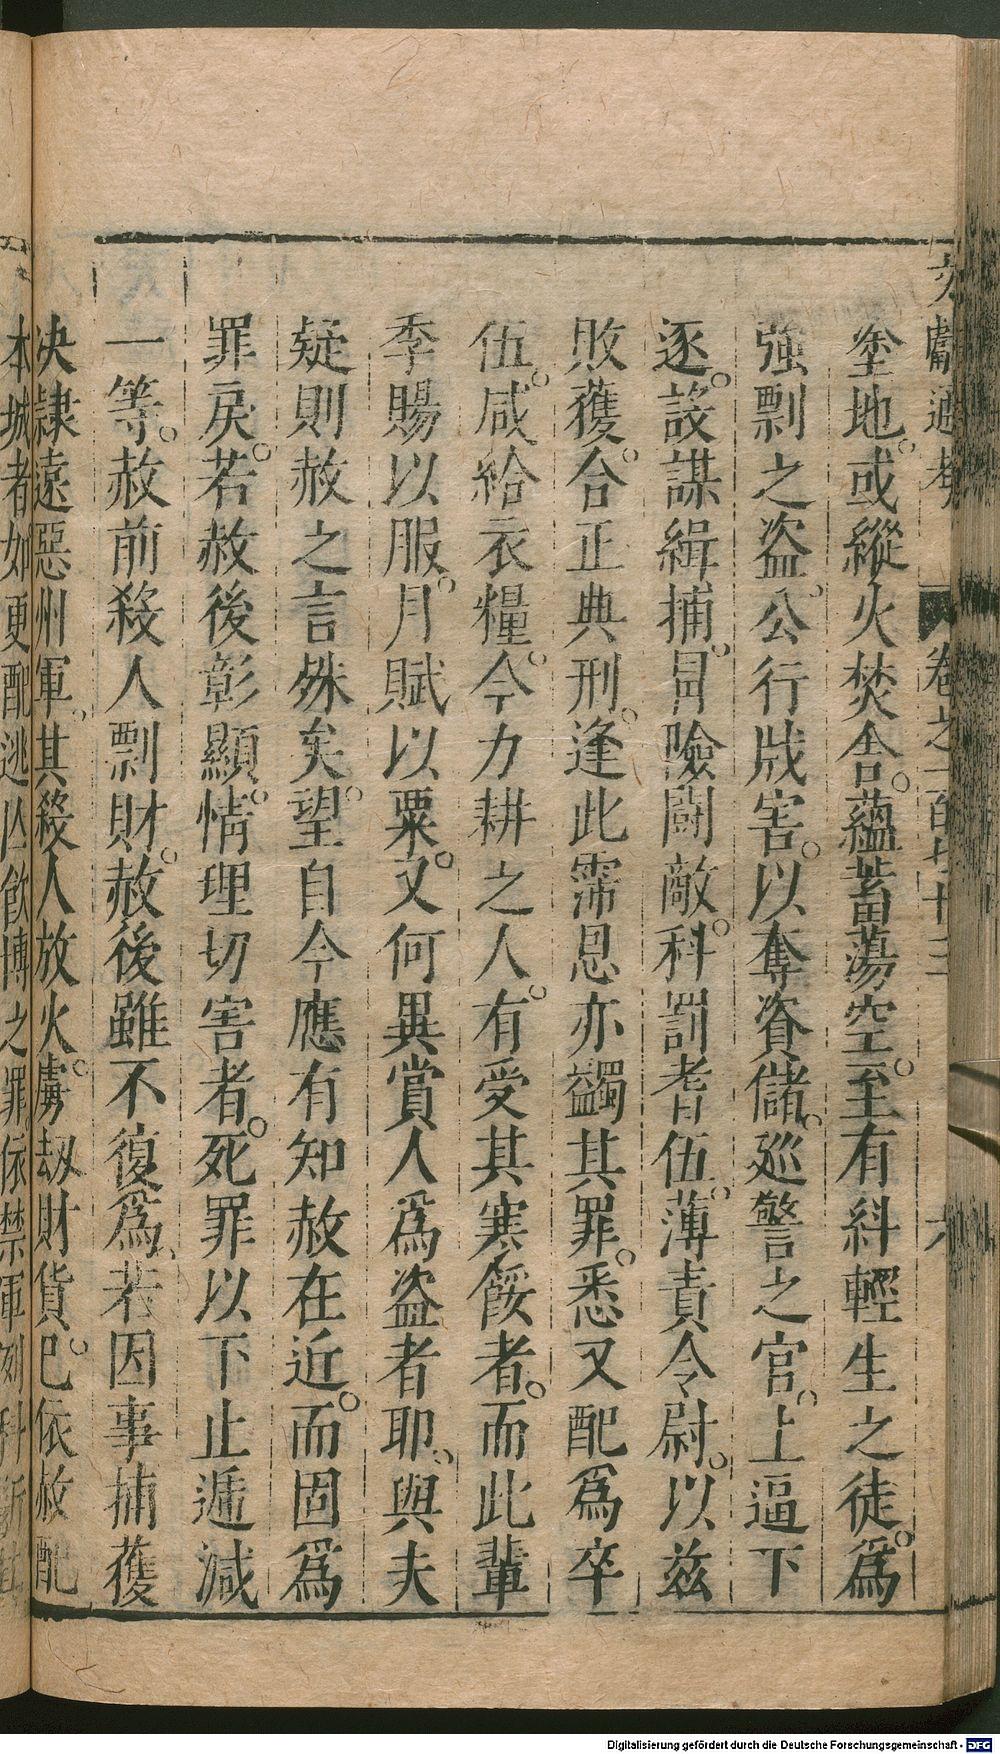 文獻通考 卷之一百七十三 六
塗地。或縱火焚舎。蘊蓄蕩空。至有紏輕生之徒。爲
強剽之盗。公行戕害。以奪資儲。巡警之官。上逼下
逐。設謀緝捕。冒險鬪敵。科罰耆伍。薄責令尉。以兹
敗獲。合正典刑。逢此霈恩亦蠲其罪。悉又配爲卒
伍。咸給衣糧。今力耕之人。有受其寒餒者。而此輩
季賜以服。月賦以粟。又何異賞人爲盗者耶、與夫
疑則赦之言殊矣。望自今應有知赦在近。而固爲
罪戾。若赦後彰顯。情理切害者。死罪以下止遞減
一等。赦前殺人剽財。赦後雖不復爲、若因事捕獲
决隷遠惡州軍。其殺人放火。虜劫財貨。已依赦配
本城者如更配逃亾飲博之罪。依禁軍例科斷
Digitalisierung gefördert durch die Deutsche Forschungsgemeinschaft - DFG